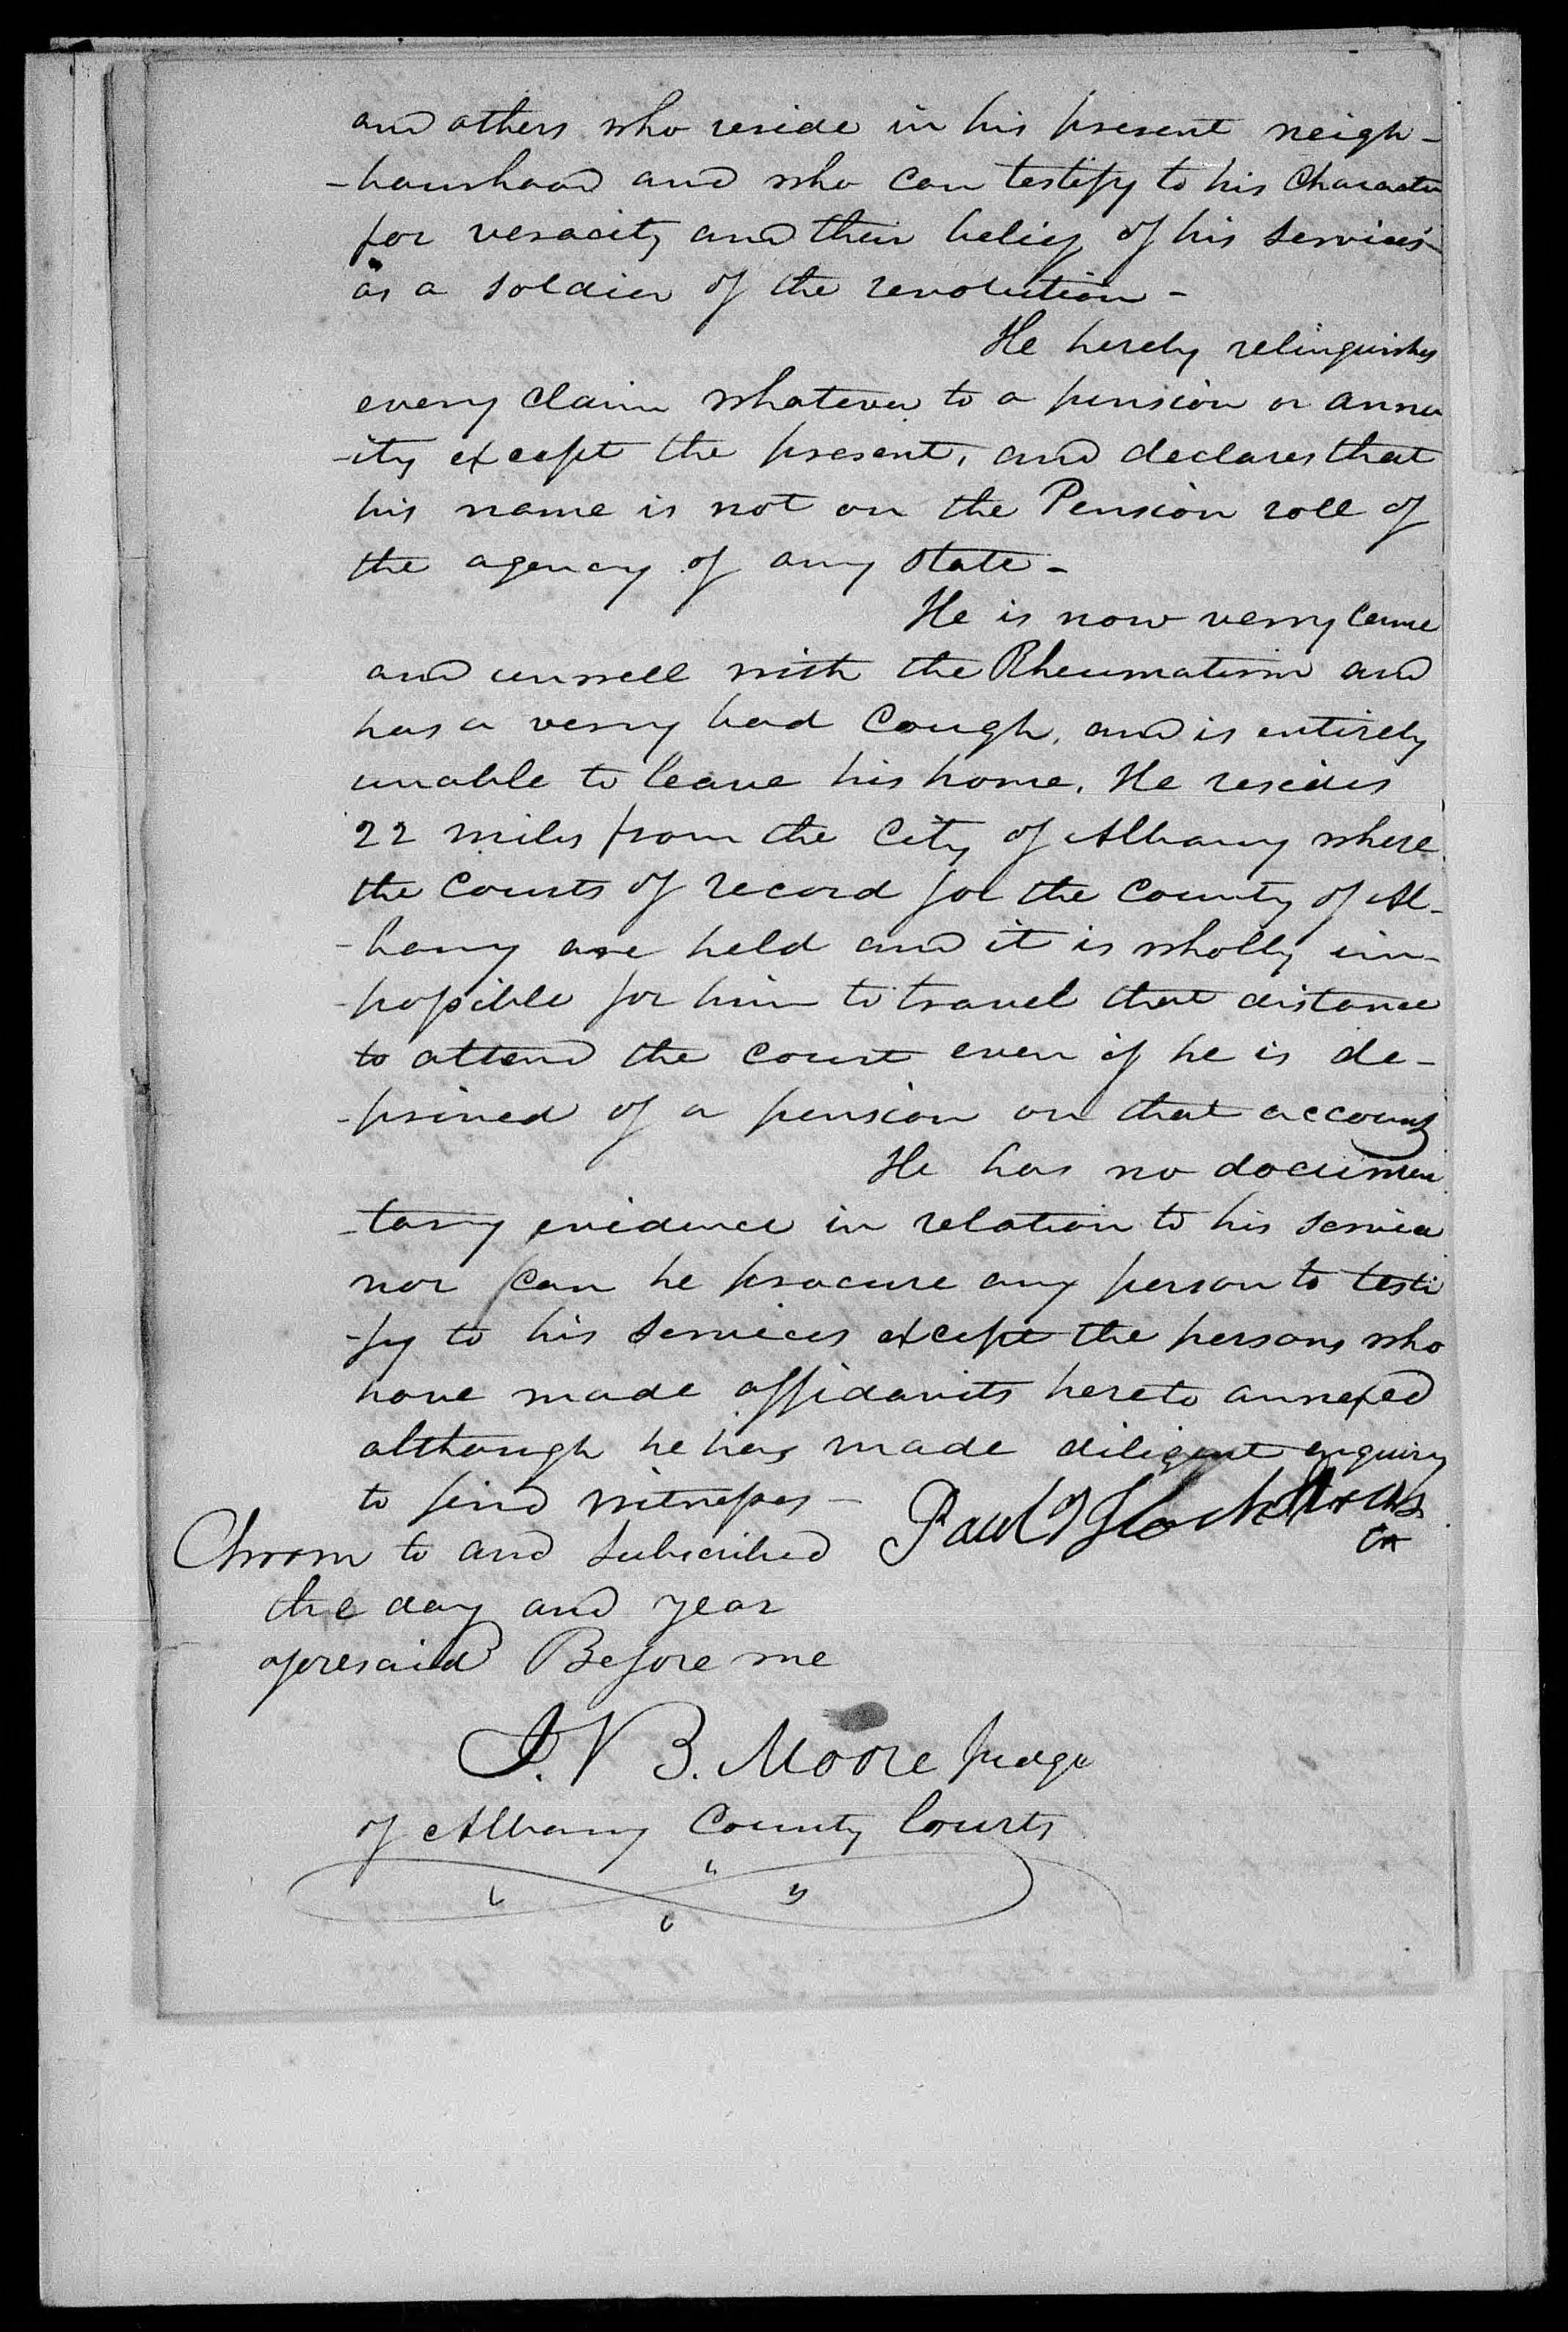 and others who reside in his present neigh-
-bourhood and who can testify to his Character
for veracity and their belief of his services
as a soldier of the revolution -
He hereby relinquishes
every claim whatever to a pension or annu
-ity except the present, and declares that
his name is not on the Pension roll of
the agency of any state -
He is now verry lame
and unwell with the Rheumatism and
has a verry bad Cough, and is entirely
unable to leave his home. He resides
22 miles from the City of Albany where
the Courts of record for the County of Al-
-bany are held and it is wholly im-
-possible for him to travel that distance
to attend the court even if he is de-
-prived of a pension on that account
He has no documen
-tary evidence in relation to his service
nor can he procure any person to testi
-fy to his services except the persons who
have made affidavits hereto annexed
although he has made diligent enquiry
to find witnesses -
Paul
Sworn to and subscribed
the day and year
aforesaid Before me
J. V B. Moore Judge
of Albany County Courts